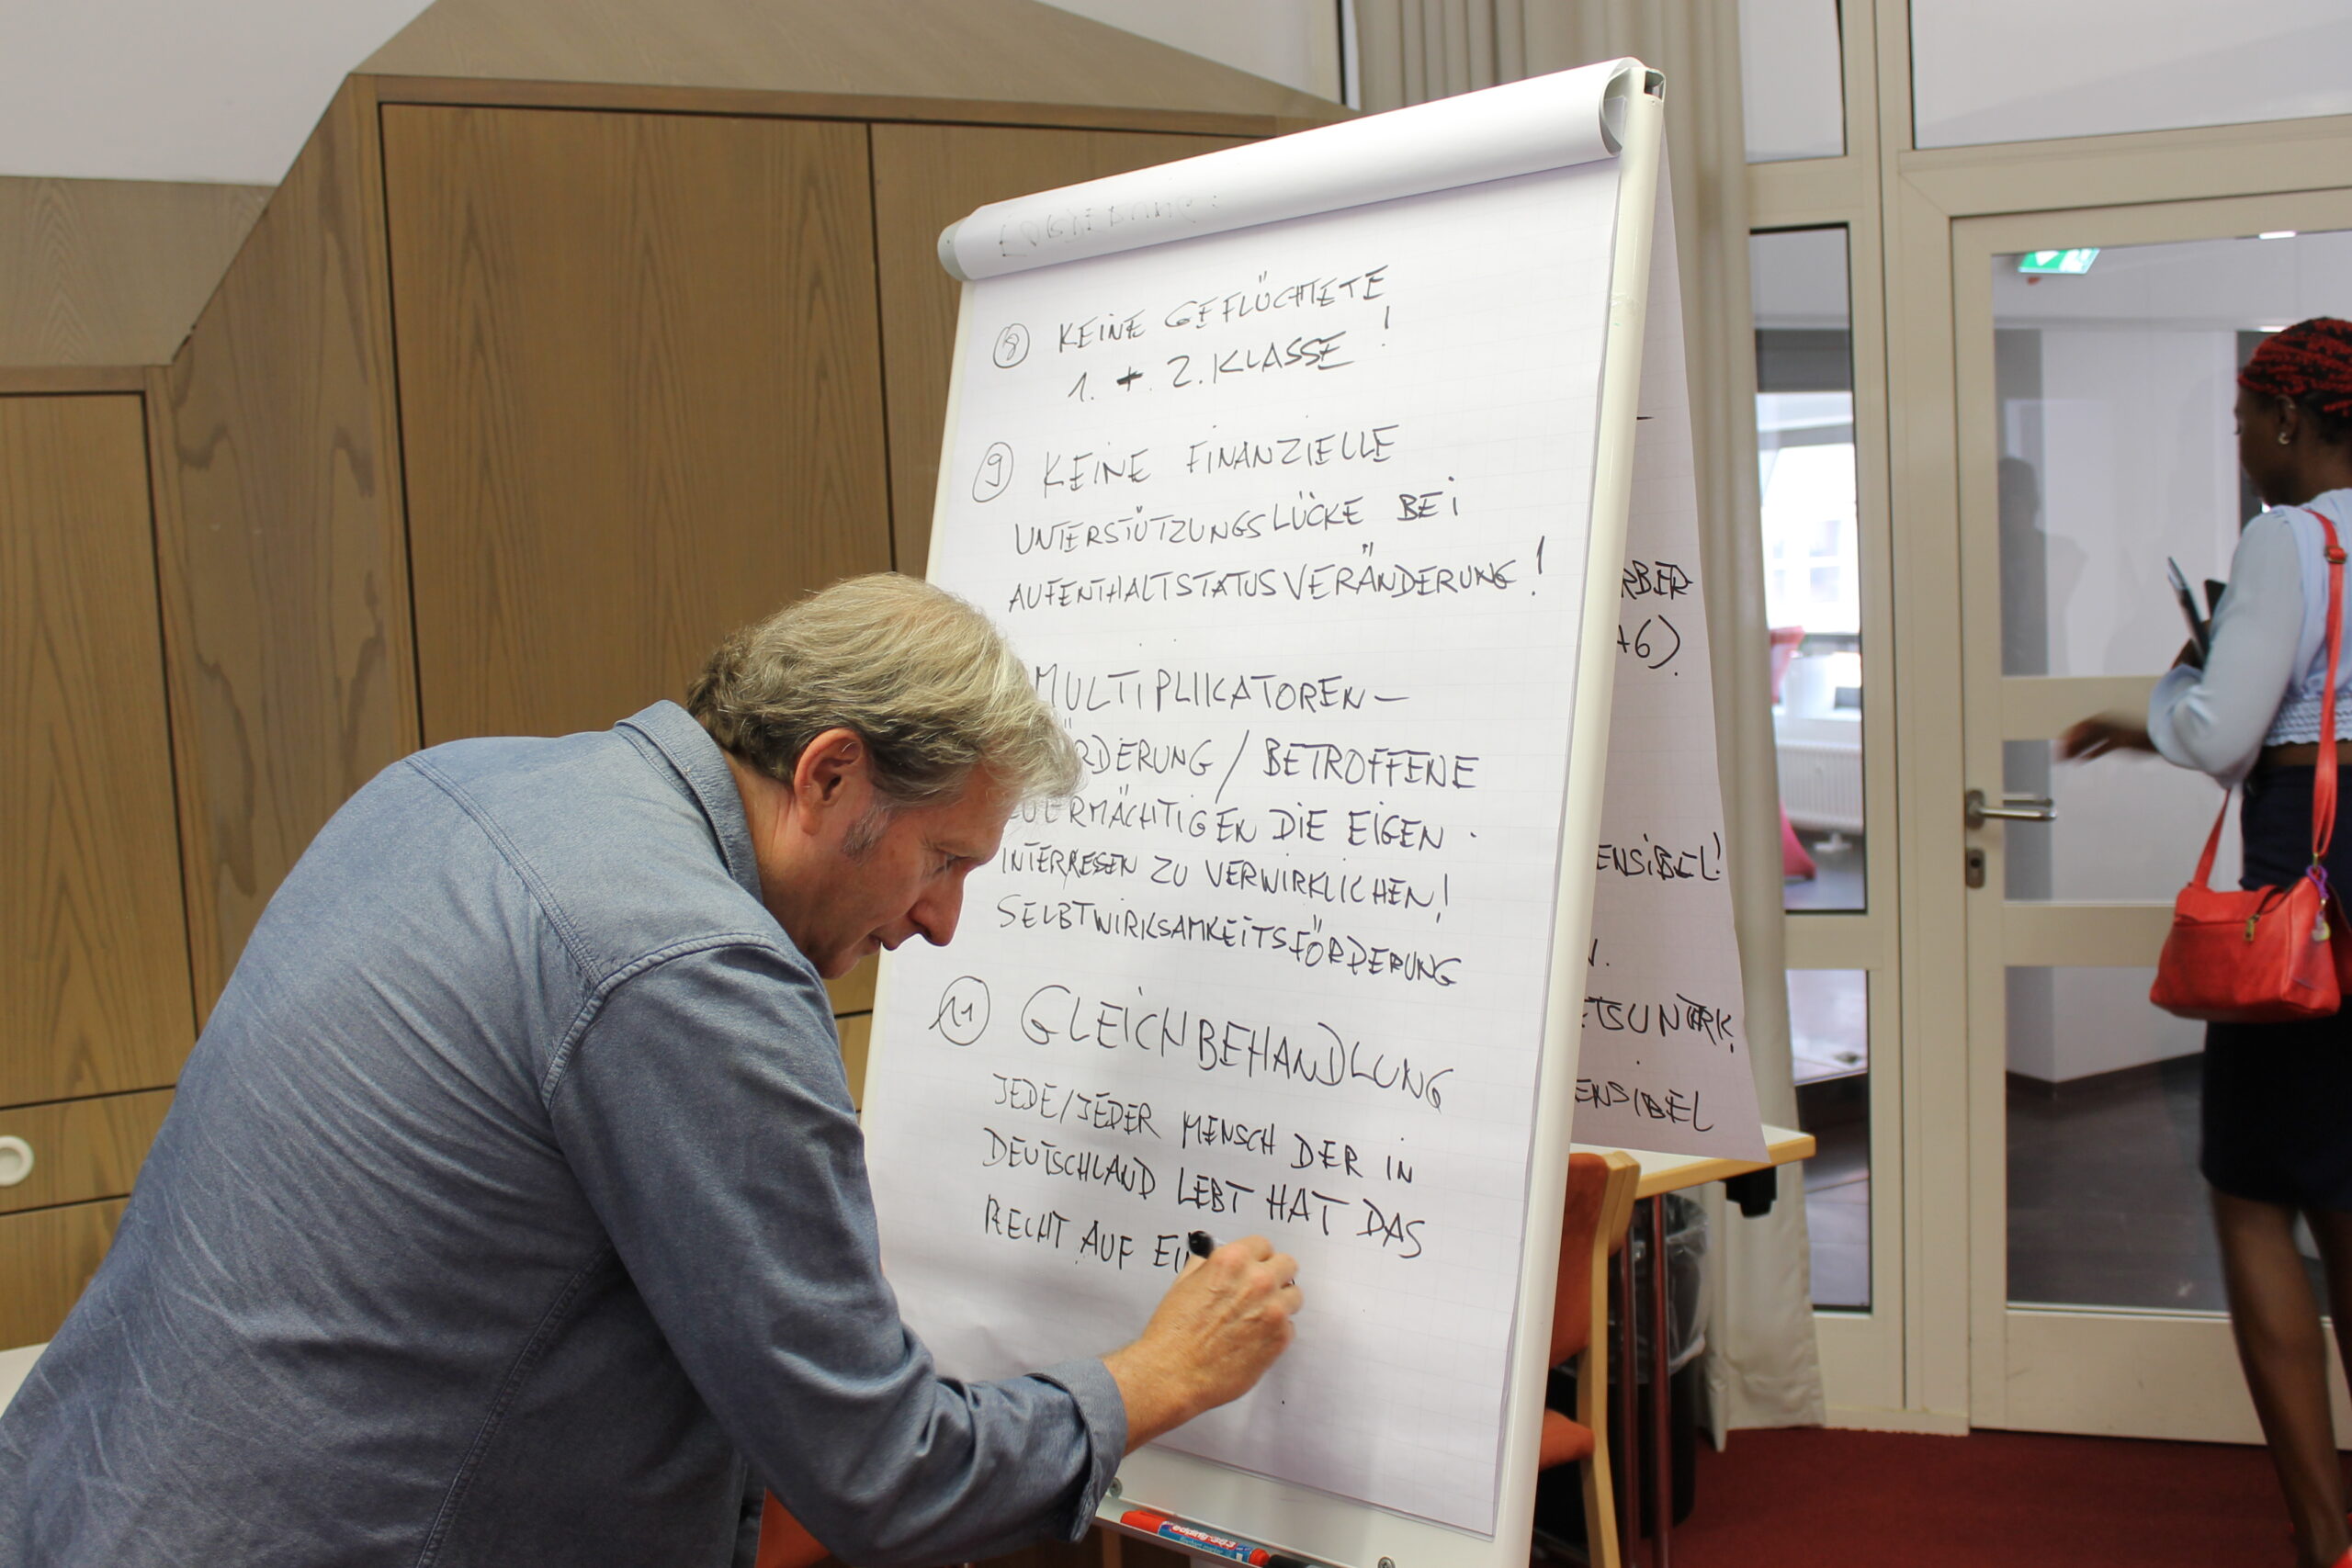 8 KEINE GEFLÜCHTETE
1. + 2. KLASSE!
9 KEINE FINANZIELLE
UNTERSTÜTZUNGSLÜCKE BEI
AUFENTHALTSTATUSVERÄNDERUNG!
MULTIPLIKATOREN-
ÖRDERUNG / BETROFFENE
ERMÄCHTIGEN DIE EIGEN
INTERRESEN ZU VERWIRKLICHEN!
SELBTWIRKSAMKEITSFÖRDERUNG
11 GLEICHBEHANDLUNG
JEDE/JEDER MENSCH DER IN
DEUTSCHLAND LEBT HAT DAS
RECHT AUF EIN
RBER
+6).
ENSIBEL!
ENSIBEL
edding